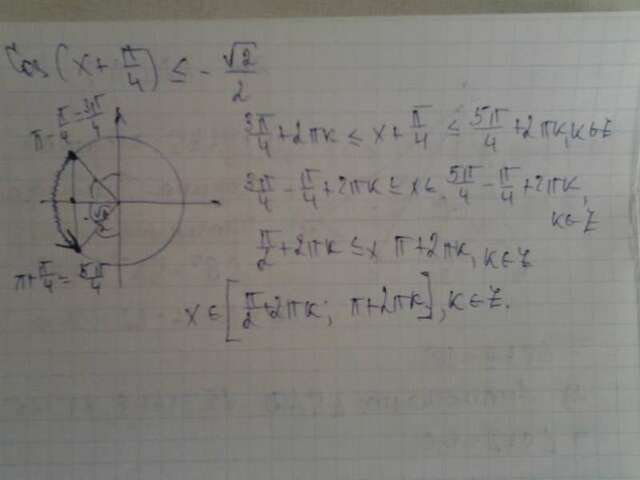 Cos(x + π/4) ≤ - √2/2
π - π/4 = 3π/4
3π/4 + 2πk ≤ x + π/4 ≤ 5π/4 + 2πk, k∈Z
3π/4 - π/4 + 2πk ≤ x ≤ 5π/4 - π/4 + 2πk,
k∈Z
π/2 + 2πk ≤ x π + 2πk, k∈Z
π + π/4 = 5π/4
x ∈ [π/2 + 2πk; π + 2πk], k∈Z.